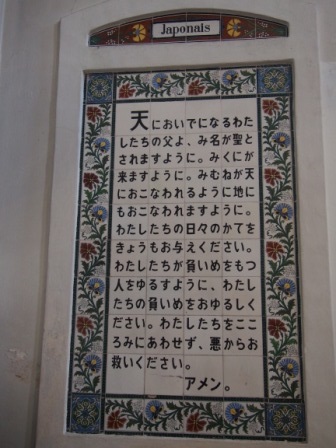 Japonais
天においでになるわた
したちの父よ、み名が聖と
されますように。みくにが
来ますように。みむねが天
におこなわれるように地に
もおこなわれますように。
わたしたちの日々のかてを
きょうもお与えください。
わたしたちが負いめをもつ
人をゆるすように、わたし
たちの負いめをおゆるしく
ださい。わたしたちをここ
ろみにあわせず、悪からお
救いください。
アメン。